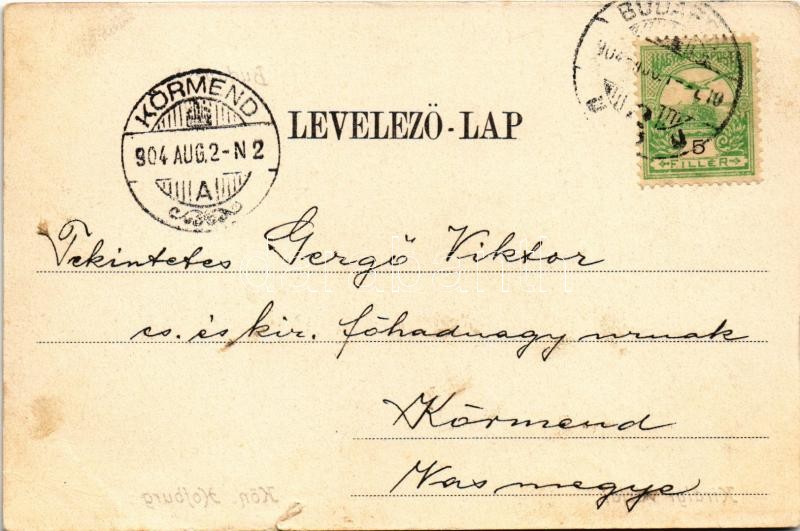 BUDAPEST
904 AUG
MAGYAR
5
FILLÉR
KÖRMEND
904 AUG. 2 - N 2
A
LEVELEZŐ-LAP
Tekintetes Gergő Viktor
cs. és kir. főhadnagy urnak
Körmend
Vasmegye
Kön. Hofburg